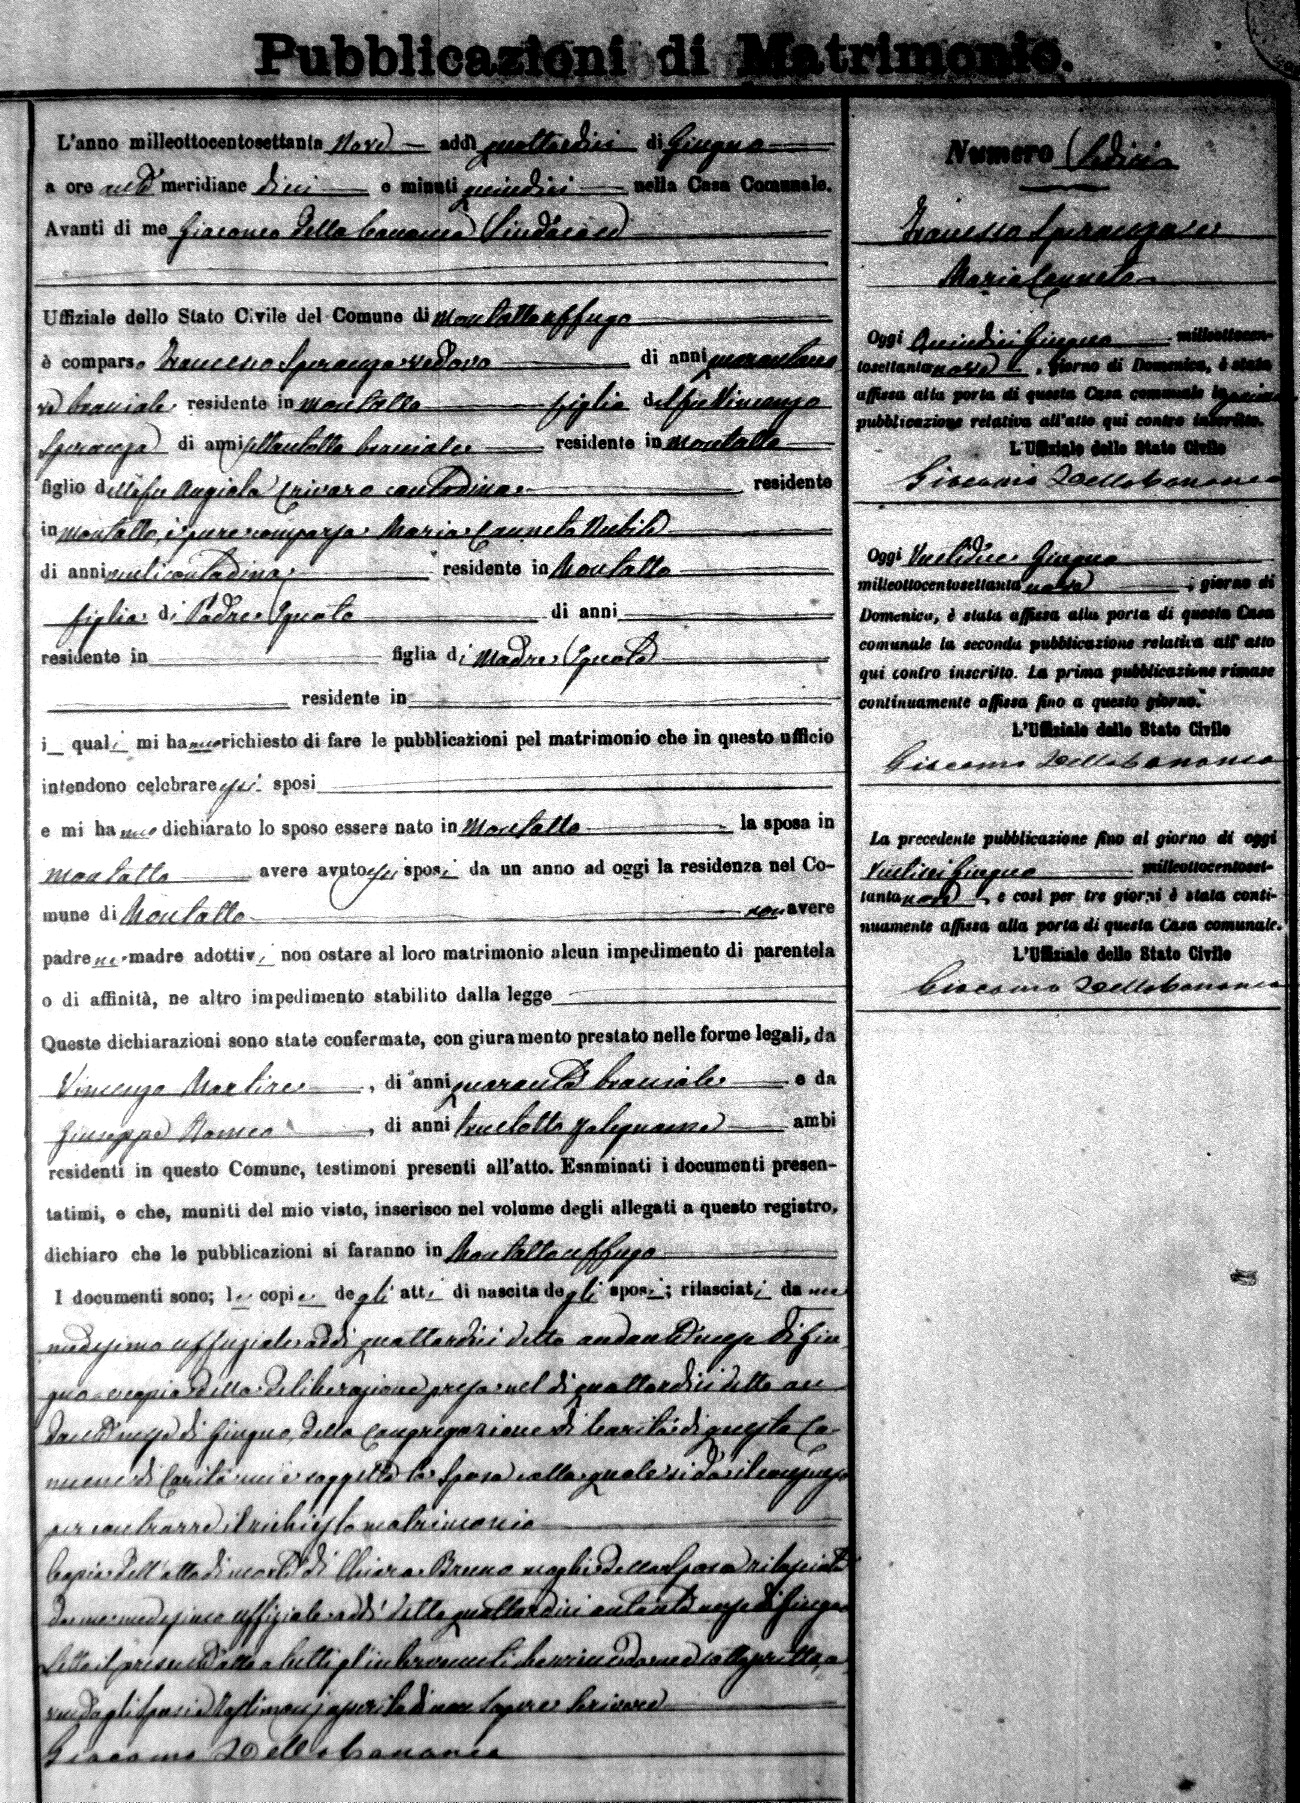 Pubblicazioni di Matrimonio.
L'anno milleottocentosettanta Nove addì quattordici di Giugno
a ore anti meridiane dieci e minuti quindici nella Casa Comunale.
Avanti di me Giacomo Della Cananea Sindaco
Uffiziale dello Stato Civile del Comune di Montalto Uffugo
è comparso Francesco Speranza vedovo di anni quarantano
ve bracciale residente in Montalto figlio del fu Vincenzo
Speranza di anni settantotto bracciale residente in Montalto
figlio della fu Angiola Crivaro contadina residente
in Montalto, è pure comparsa Maria Canneto Nubile
di anni venti contadina residente in Montalto
figlia di Padre Ignoto di anni
residente in figlia di Madre Ignota
residente in
i quali mi hanno richiesto di fare le pubblicazioni pel matrimonio che in questo ufficio
intendono celebrare essi sposi
e mi hanno dichiarato lo sposo essere nato in Montalto la sposa in
Montalto avere avuto essi sposi da un anno ad oggi la residenza nel Co-
mune di Montalto non avere
padre ne madre adottivi non ostare al loro matrimonio alcun impedimento di parentela
o di affinità, ne altro impedimento stabilito dalla legge
Queste dichiarazioni sono state confermate, con giuramento prestato nelle forme legali, da
Vincenzo Martire, di anni quaranta bracciale e da
Giuseppe Romeo, di anni trentotto falegname ambi
residenti in questo Comune, testimoni presenti all'atto. Esaminati i documenti presen-
tatimi, e che, muniti del mio visto, inserisco nel volume degli allegati a questo registro,
dichiaro che le pubblicazioni si faranno in Montalto Uffugo
I documenti sono; le copie degli atti di nascita degli sposi; rilasciati da me
medesimo uffiziale addì quattordici detto andante mese di Giu
gno e copia della deliberazione presa nel dì quattordici detto an
dante mese di Giugno, dalla Congregazione di Carità di questo Co-
mune di Carità cui è soggetta la Sposa colla quale si dà il consenso
per contrarre il richiesto matrimonio
Copia dell'atto di morte di Chiara Bruno moglie dello Sposo rilasciata
da me medesimo uffiziale addì detto quattordici andante mese di Giugno
Letto il presente atto a tutti gl'intervenuti da me sottoscritto, a
vendo gli Sposi e Testimoni asserito di non sapere scrivere
Giacomo Della Cananea
Numero Sedici
Francesco Speranza e
Maria Canneto
Oggi Quindici Giugno milleottocen-
tosettantanove, giorno di Domenica, è stata
affissa alla porta di questa Casa comunale la prima
pubblicazione relativa all'atto qui contro inscritto.
L'Uffiziale dello Stato Civile
Giacomo Della Cananea
Oggi Ventidue Giugno
milleottocentosettanta nove; giorno di
Domenica, è stata affissa alla porta di questa Casa
comunale la seconda pubblicazione relativa all'atto
qui contro inscritto. La prima pubblicazione rimase
continuamente affissa fino a questo giorno.
L'Uffiziale dello Stato Civile
Giacomo Della Cananea
La precedente pubblicazione fino al giorno di oggi
Giugno milleottocentoset-
tanta nove e così per tre giorni è stata conti-
nuamente affissa alla porta di questa Casa comunale.
L'Uffiziale dello Stato Civile
Giacomo Della Cananea